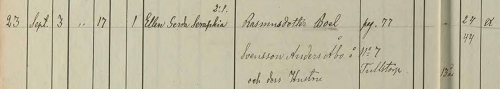 d. 1.
23 Sept. 3 " 17 1 Ellen Gerda Serafikia Rasmusdotter Boel pg. 77 24 ea
å
Svensson, Anders Åbo å No 7 44
och dess Hustru Tullstorp